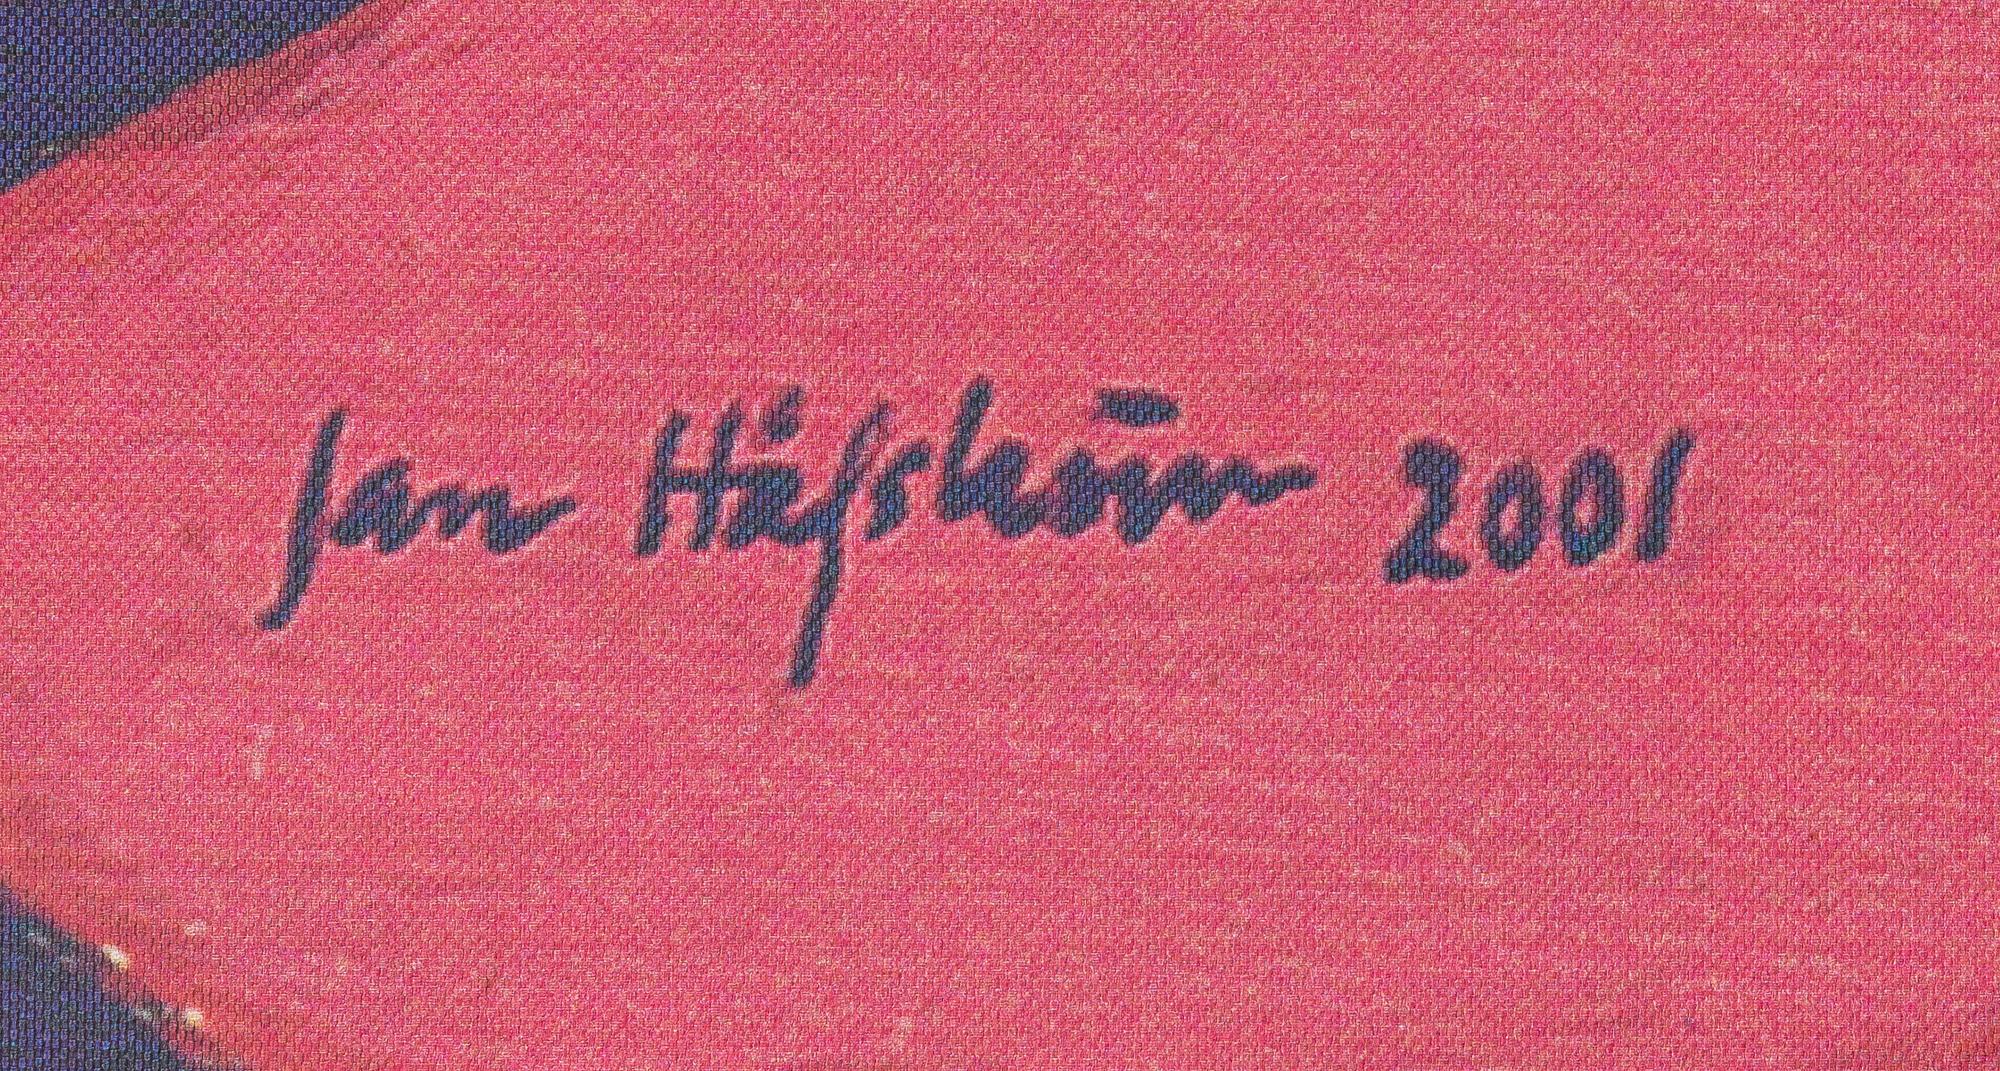 Jan Håfström 2001